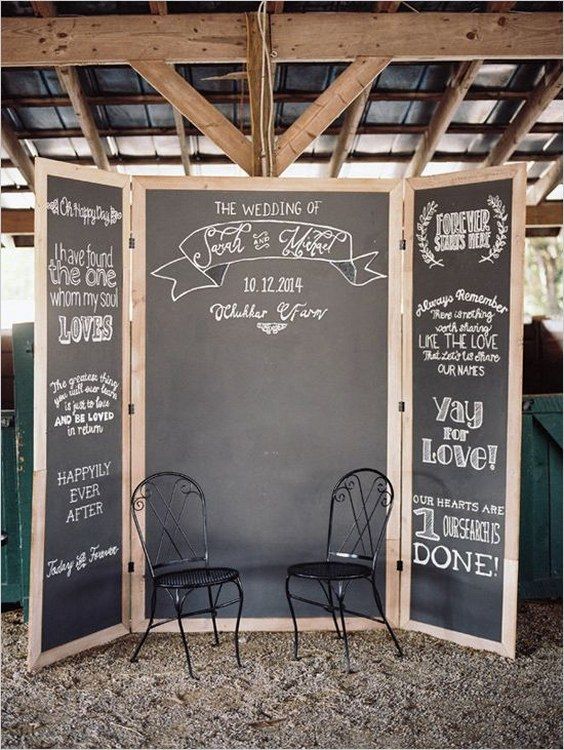 Oh Happy Day
I have found
the one
whom my soul
LOVES
The greatest thing
you will ever learn
is just to love
AND BE LOVED
in return
HAPPILY
EVER
AFTER
Today & Forever
THE WEDDING OF
Sarah AND Michael
10.12.2014
Chukkar Farm
FOREVER
STARTS HERE
Always Remember
There is nothing
worth sharing
LIKE THE LOVE
That Let's Us Share
OUR NAMES
YAY
for
LOVE!
OUR HEARTS ARE
1 OUR SEARCH IS
DONE!